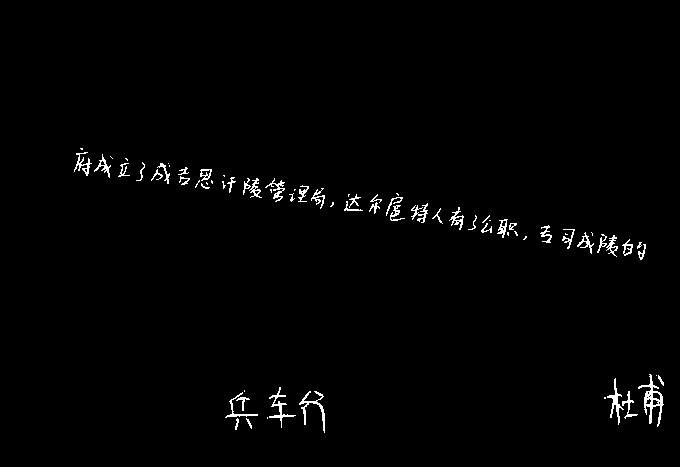 府成立了成吉思汗陵管理局,达尔扈特人有了公职,专司成陵的
兵车行 杜甫